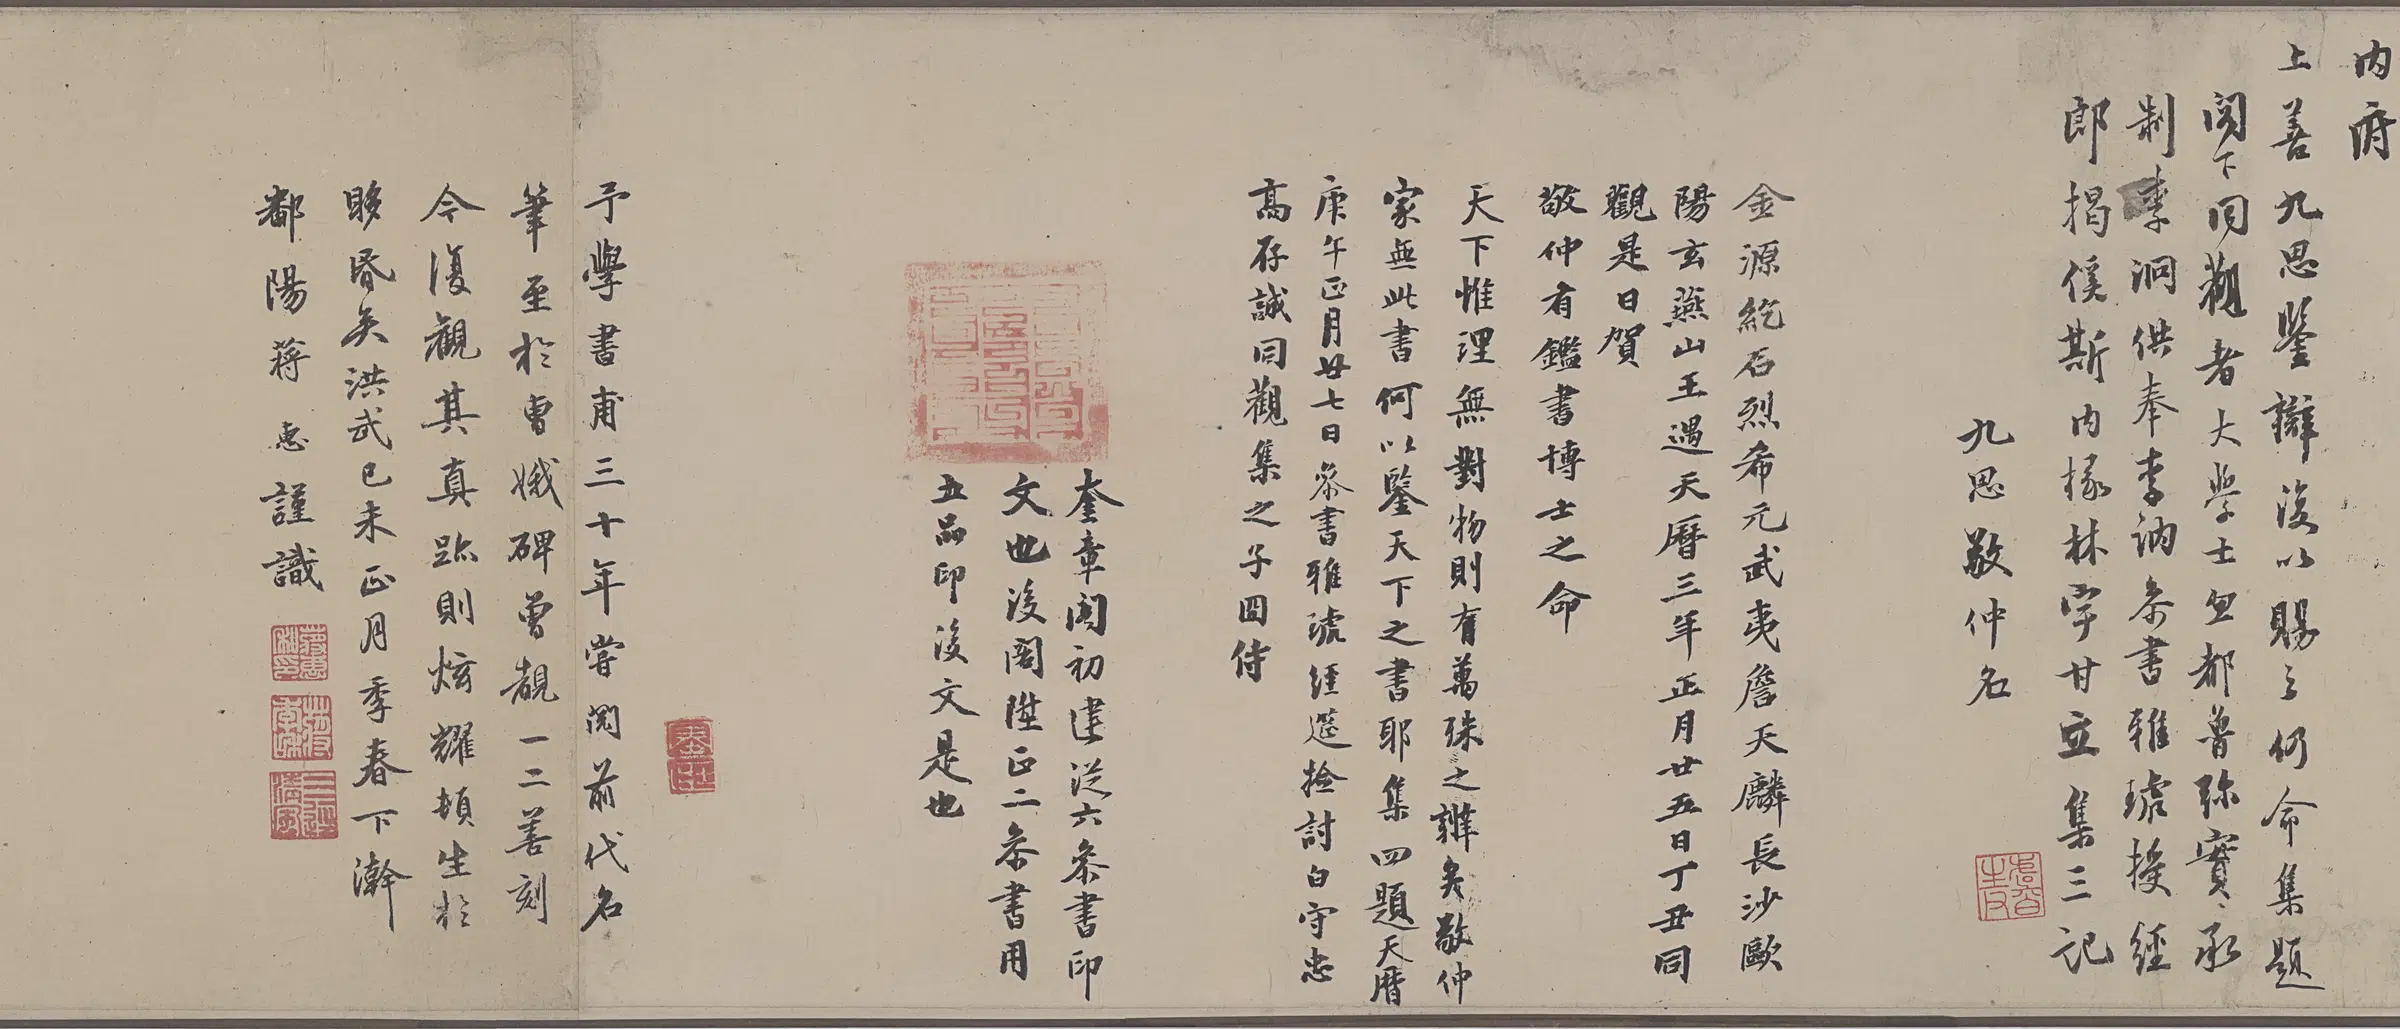 内府
上善九思鑒辯後以賜之仍命集題
閣下同觀者大學士忽都魯弥實承
制李泂供奉李訥參書雅琥授經
郎揭傒斯内掾林宇甘立集三記
九思敬仲名
金源紇石烈希元武夷詹天麟長沙歐
陽玄燕山王遇天曆三年正月廿五日丁丑同
觀是日賀
敬仲有鑑書博士之命
天下惟理無對物則有萬殊之辨矣敬仲
家無此書何以鑒天下之書耶集四題天曆
庚午正月廿七日叅書雅琥經筵檢討白守忠
高存誠同觀集之子囝侍
奎章閣初建從六叅書印
文也後閣陞正二叅書用
五品印後文是也
予學書甫三十年嘗閱前代名
筆至於曹娥碑曾覩一二善刻
今復觀其真跡則炫耀頓生於
眵昏矣洪武已未正月季春下澣
鄱陽蔣惠謹識